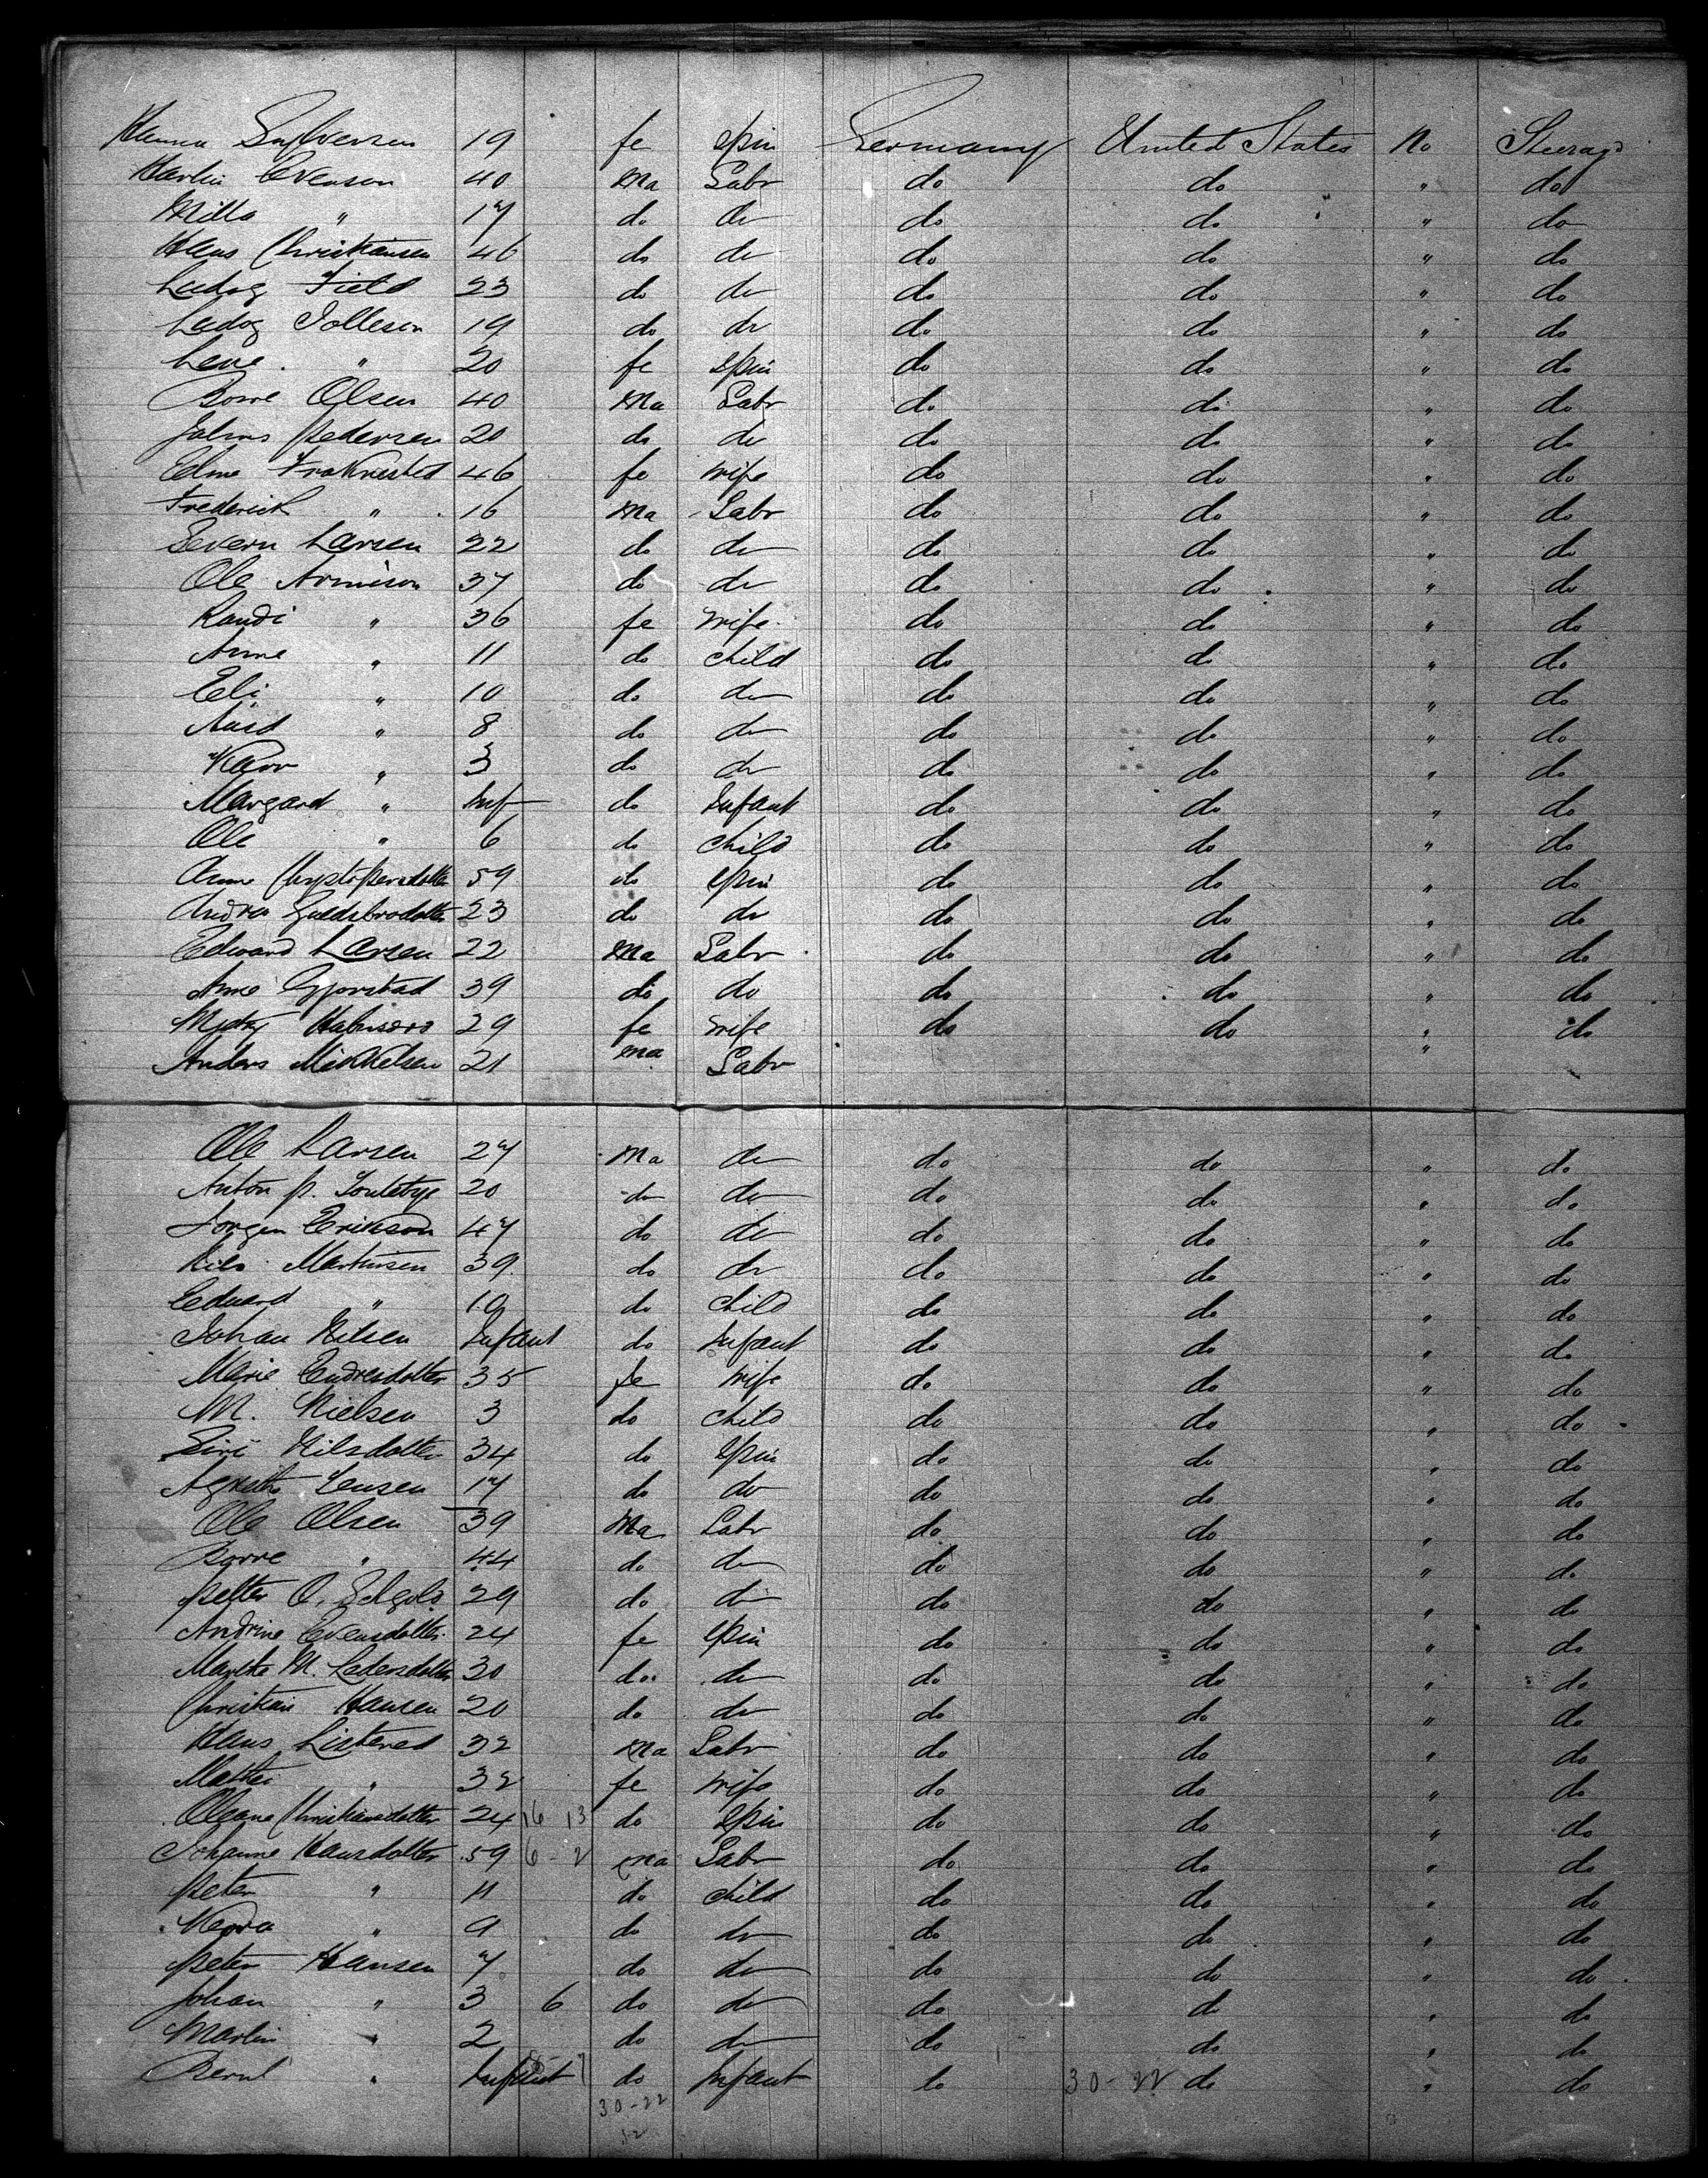 Hanna Sylversen 19 fe Spin Germany United States No Steerage
Martin Evenson 40 Ma Labr do do " do
Mills " 17 do do do do " do
Hans Christiansen 46 do do do do " do
Ludog Field 23 do do do do " do
Ludog Tollesen 19 do do do do " do
Lene " 20 fe Spin do do " do
Borre Olsen 40 Ma Labr do do " do
Johns Pedersen 20 do do do do " do
Elme 46 fe wife do do " do
Frederick " 16 Ma Labr do do " do
Severn Larsen 22 do do do do " do
Ole Arnneson 37 do do do do " do
Randi " 36 fe wife do do " do
Anne " 11 do child do do " do
Eli " 10 do do do do " do
Aasd " 8 do do do do " do
Karr " 3 do do do do " do
Margard " Inf do Infant do do " do
Ole " 6 do child do do " do
Anne 59 do Spin do do " do
Andrea Guldsbrodotter 23 do do do do " do
Edward Larsen 22 Ma Labr do do " do
Anne Gjorstad 39 do do do do " do
29 fe wife do do " do
Anders Mikkelsen 21 ma Labr "
Ole Larsen 27 Ma do do do " do
Anton P. 20 do do do do " do
Jorgen Erikson 47 do do do do " do
Nils Martinsen 39 do do do do " do
Edward " 10 do child do do " do
Johan Nilsen Infant do Infant do do " do
Marie Endresdotter 35 fe wife do do " do
M. Nielsen 3 do child do do " do
Siri Nilsdotter 34 do Spin do do " do
Agnethe Jensen 17 do do do do " do
Ole Olsen 39 Ma Labr do do " do
Borre " 44 do do do do " do
Petter O. 29 do do do do " do
Andrine Evensdotter 24 fe Spin do do " do
Marthe M. Ledersdotter 30 do do do do " do
Christian Hansen 20 do do do do " do
Hans Listered 32 ma Labr do do " do
Mathei " 32 fe wife do do " do
Oleane Christiansdotter 24 16 13 do Spin do do " do
Johanne Hansdotter 59 6 - 2 ma Labr do do " do
Peter " 11 do child do do " do
" 9 do do do do " do
Peter Hansen 7 do do do do " do
Johan " 3 6 do do do do " do
Martin " 2 do do do do " do
Bernt " Infant do Infant do 30-22 do " do
30-22